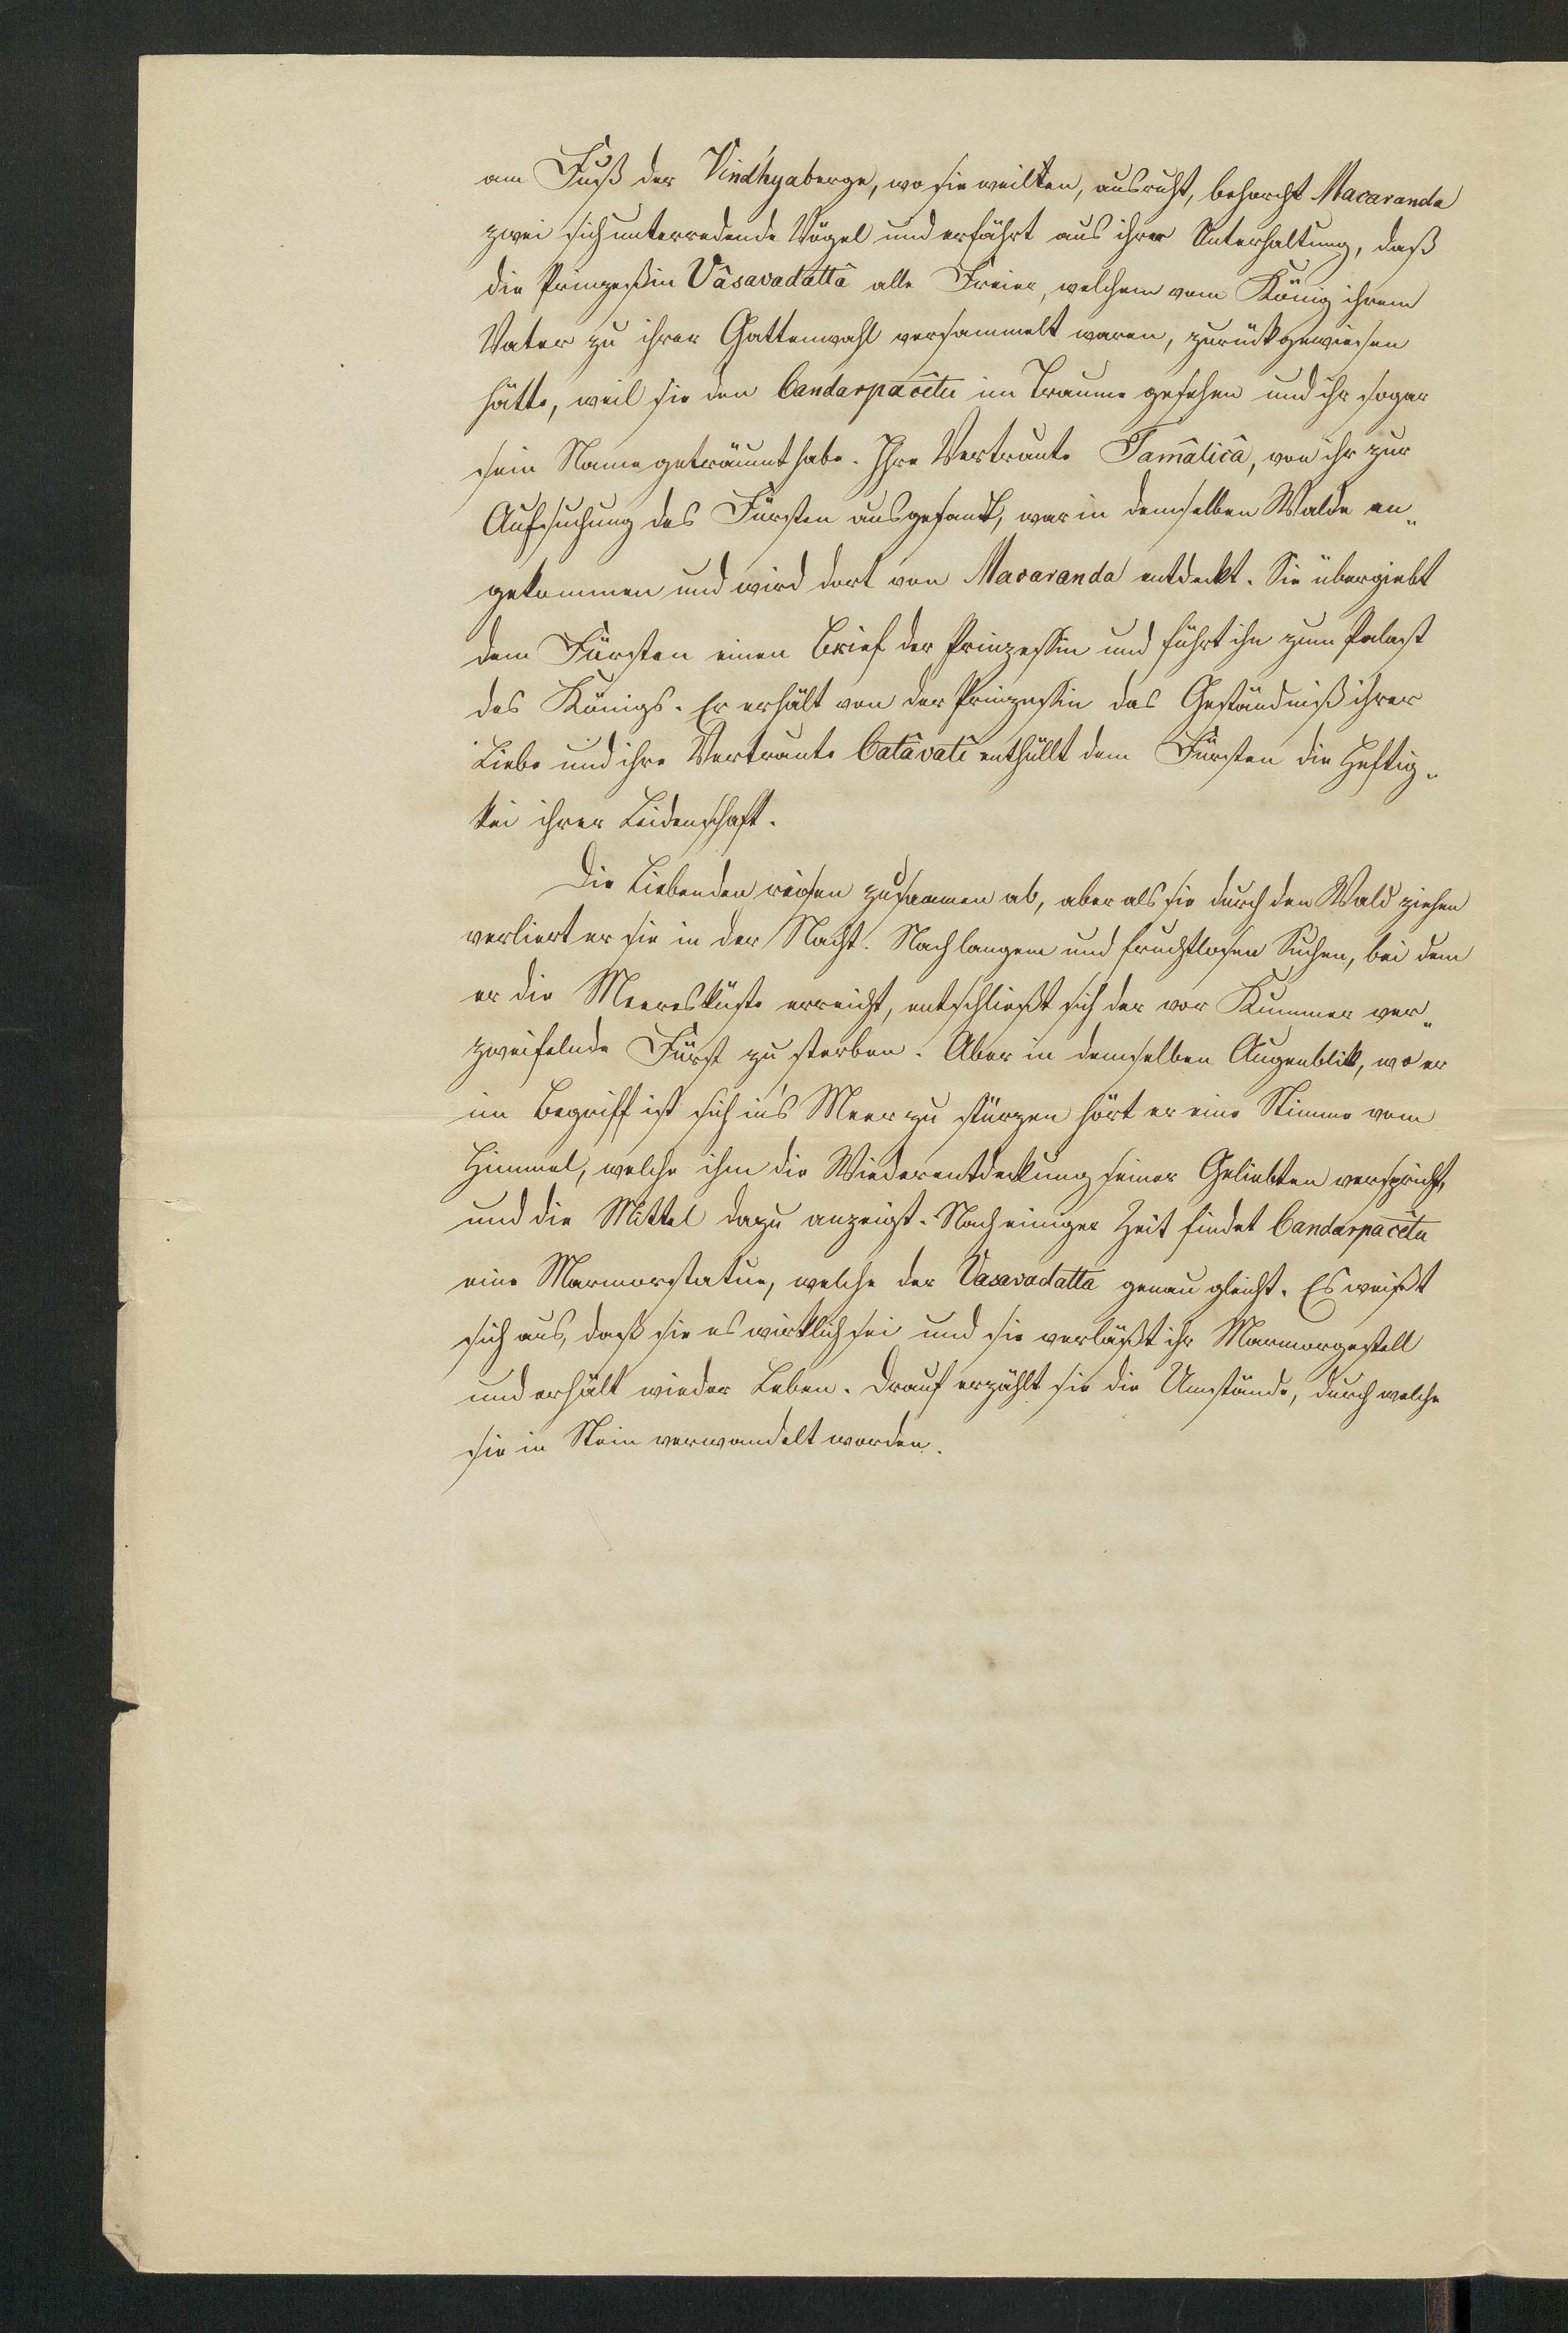 am Fuß der Vindhyaberge, wo sie weilten, ausruht, behorcht Macaranda
zwei sich unterredende Vögel und erfährt aus ihrer Unterhaltung, daß
die Prinzeßin Vâsavadattâ alle Freier, welchem vom König ihrem
Vater zu ihrer Gattenwahl versammelt waren, zurückgewiesen
hätte, weil sie den Candarpacêtu im Traume gesehen und ihr sogar
sein Name geträumt habe. Ihre Vertraute Tamâlicâ, von ihr zur
Aufsuchung des Fürsten ausgesandt, war in demselben Walde an„
gekommen und wird dort von Macaranda entdeckt. Sie übergiebt
dem Fürsten einen Brief der Prinzessin und führt ihn zum Palast
des Königs. Er erhält von der Prinzessin das Geständniß ihrer
Liebe und ihre Vertraute Catâvatî enthüllt dem Fürsten die Heftig„
kei ihrer Leidenschaft.
Die Liebenden reisen zusammen ab, aber als sie durch den Wald ziehen
verliert er sie in der Nacht. Nach langem und fruchtlosen Suchen, bei dem
er die Meeresküste erreicht, entschließt sich der vor Kummer ver„
zweifelnde Fürst zu sterben. Aber in demselben Augenblick, wo er
im Begriff ist sich in's Meer zu stürzen hört er eine Stimme vom
Himmel, welche ihm die Wiederentdeckung seiner Geliebten verspricht,
und die Mittel dazu anzeigt. Nach einiger Zeit findet Candarpacêtu
eine Marmorstatue, welche der Vasavadatta genau gleicht. Es weißt
sich aus, daß sie es wirklich sei und sie verläßt ihr Marmorgestell
und erhält wieder Leben. Drauf erzählt sie die Umstände, durch welche
sie in Stein verwandelt worden.